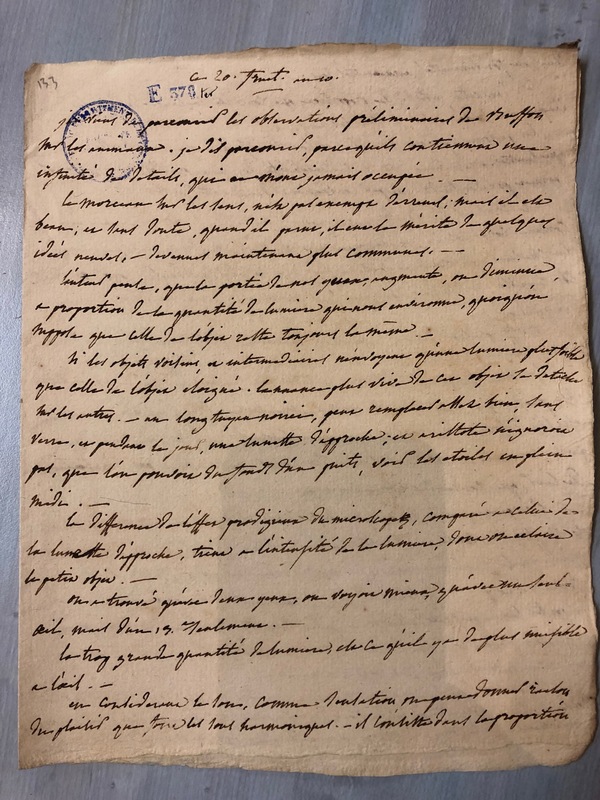 133
ce 20. fruct. an 10.
E 378 bis
je viens de parcourir les observations préliminaires de Buffon
sur les animaux. je dis parcourir, parce qu'ils contiennent une
infinité de details, qui ne m'ont jamais occupée. —
le morceau sur les sens, n'est pas exempt d'erreur; mais il est
beau; et sans doute, quand il parut, il eut le mérite de quelques
idées neuves, — devenues maintenant plus communes. —
l'auteur pense, que la portée de nos yeux, augmente, ou diminue
a proportion de la quantité de lumiere qui nous environne, quoiqu'on
suppose que celle de l'objet reste toujours la même. —
si les objets voisins, et intermediaires n'envoyent qu'une lumiere plus foible
que celle de l'objet eloigné. la nuance plus vive de cet objet se detache
sur les autres. — un long tuyau noirci, peut remplacer assez bien, sans
verre, et pendant le jour, une lunette d'approche; et aristote n'ignoroit
pas, que l'on pouvoit du fond d'un puits, voir les etoiles en plein
midi. —
la difference de l'effet prodigieux du microscope, comparé a celui de
la lunette d'approche, tient a l'intensité de la lumiere, dont on eclaire
le petit objet. —
on a trouvé qu'avec deux yeux, on voyoit mieux, qu'avec un seul
œil, mais d'un 13.e seulement. —
la trop grande quantité de lumiere, est ce qu'il y a de plus nuisible
a l'œil. —
en considerant le son, comme sensation on peut donner raison
du plaisir que font les sons harmoniques. — il consiste dans la proportion